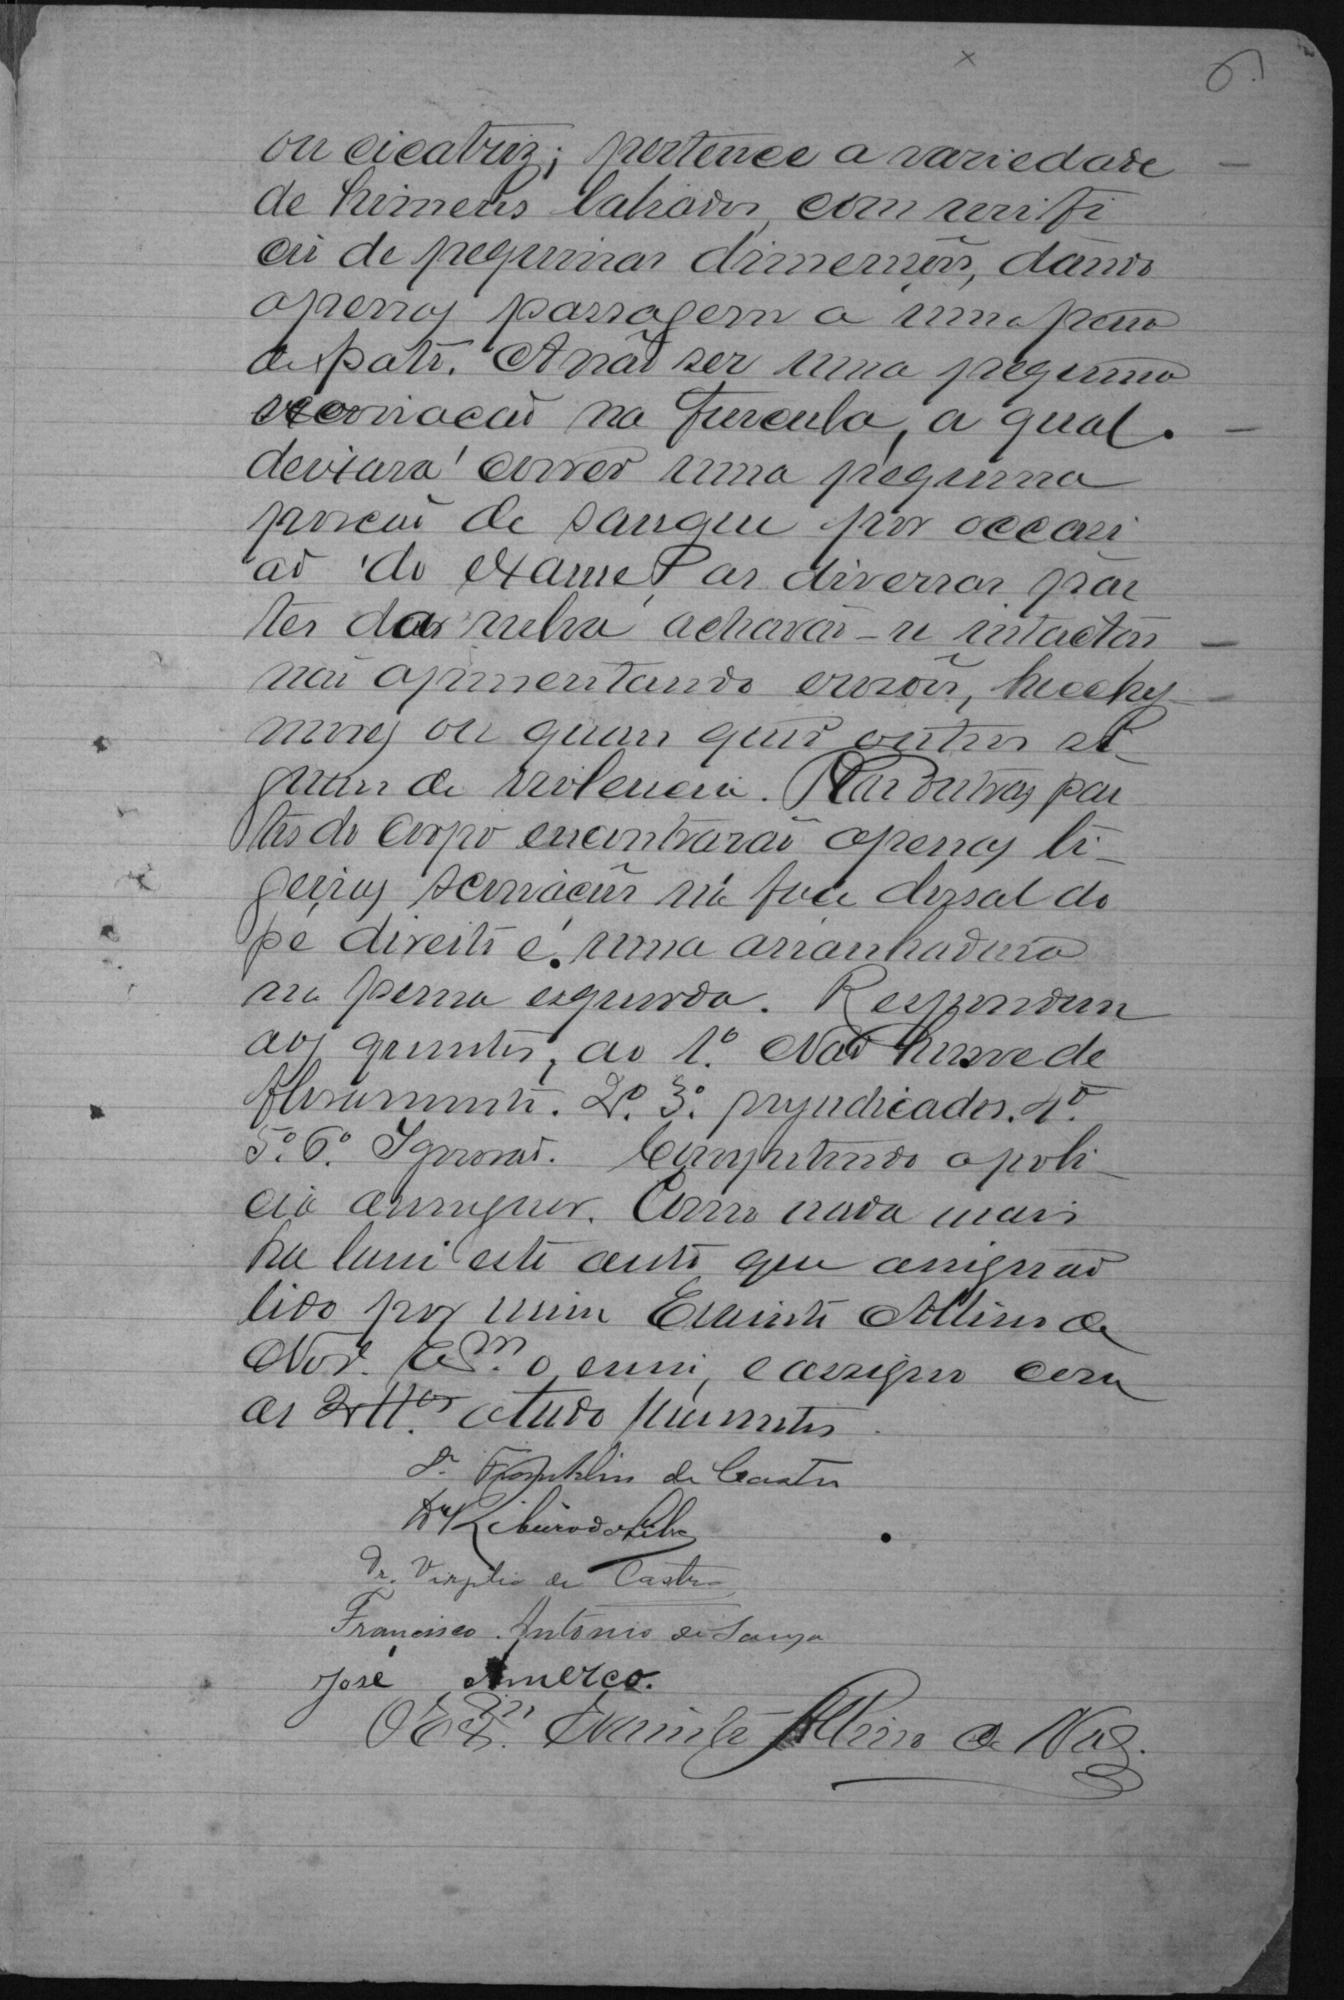 6
ou cicatriz; pertence a variedade
de himens labiados, com orifi
cio de pequenas dimensões, dando
apenas passagem a uma penna
de pato. A não ser uma pequena
escoriacaõ na furcula, a qual
deixara' correr uma pequena
porcaõ de sangue por occasi
aõ do exame, as diversas par
tes da vulva achavaõ-se intactas
naõ apresentando erosões, hecchy
moses ou quaes quer outros si
gnaes de violencia. Nas outras par
tes do corpo encontraraõ apenas li-
geiras scoriações na face dorsal do
pé direito e uma arranhadura
na perna esquerda. Respondem
aos quesitos, ao 1º. Naõ houve de
floramento. 2º. 3º. prejudicados. 4º.
5º. 6º. Ignoraõ. Competindo a poli-
cia averiguar. Como nada mais
ha lavrei este auto que assignaõ
lido por mim Evaristo Albino de
o escrevi, e assigno com
as a tudo presentes.
Dr. Franklin de Castro
Dr Ribeiro da Silva
Dr. Virgilio de Castro
Francisco Antonio de Souza
José Amerco.
O Evaristo Albino de